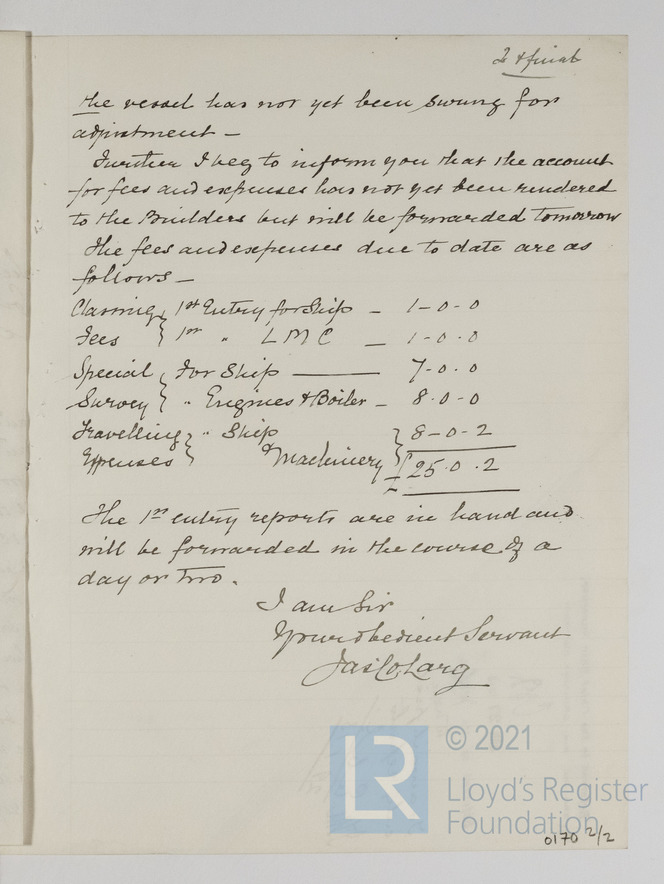 2 & final
the vessel has not yet been swung for
adjustment —
Further I beg to inform you that the account
for fees and expenses has not yet been rendered
to the Builders but will be forwarded tomorrow
The fees and expenses due to date are as
follows —
Classing } 1st Entry for Ship — 1-0-0
Fees } 1st " L M C — 1-0-0
Special } For Ship — 7-0-0
Survey } " Engines & Boiler — 8-0-0
Travelling } " Ship } 8-0-2
Expenses } & Machinery } £25.0.2
The 1st entry reports are in hand and
will be forwarded in the course of a
day or two.
I am Sir
Your obedient Servant
Jas Co. Larg
LR © 2021
Lloyd's Register
Foundation
0170 2/2